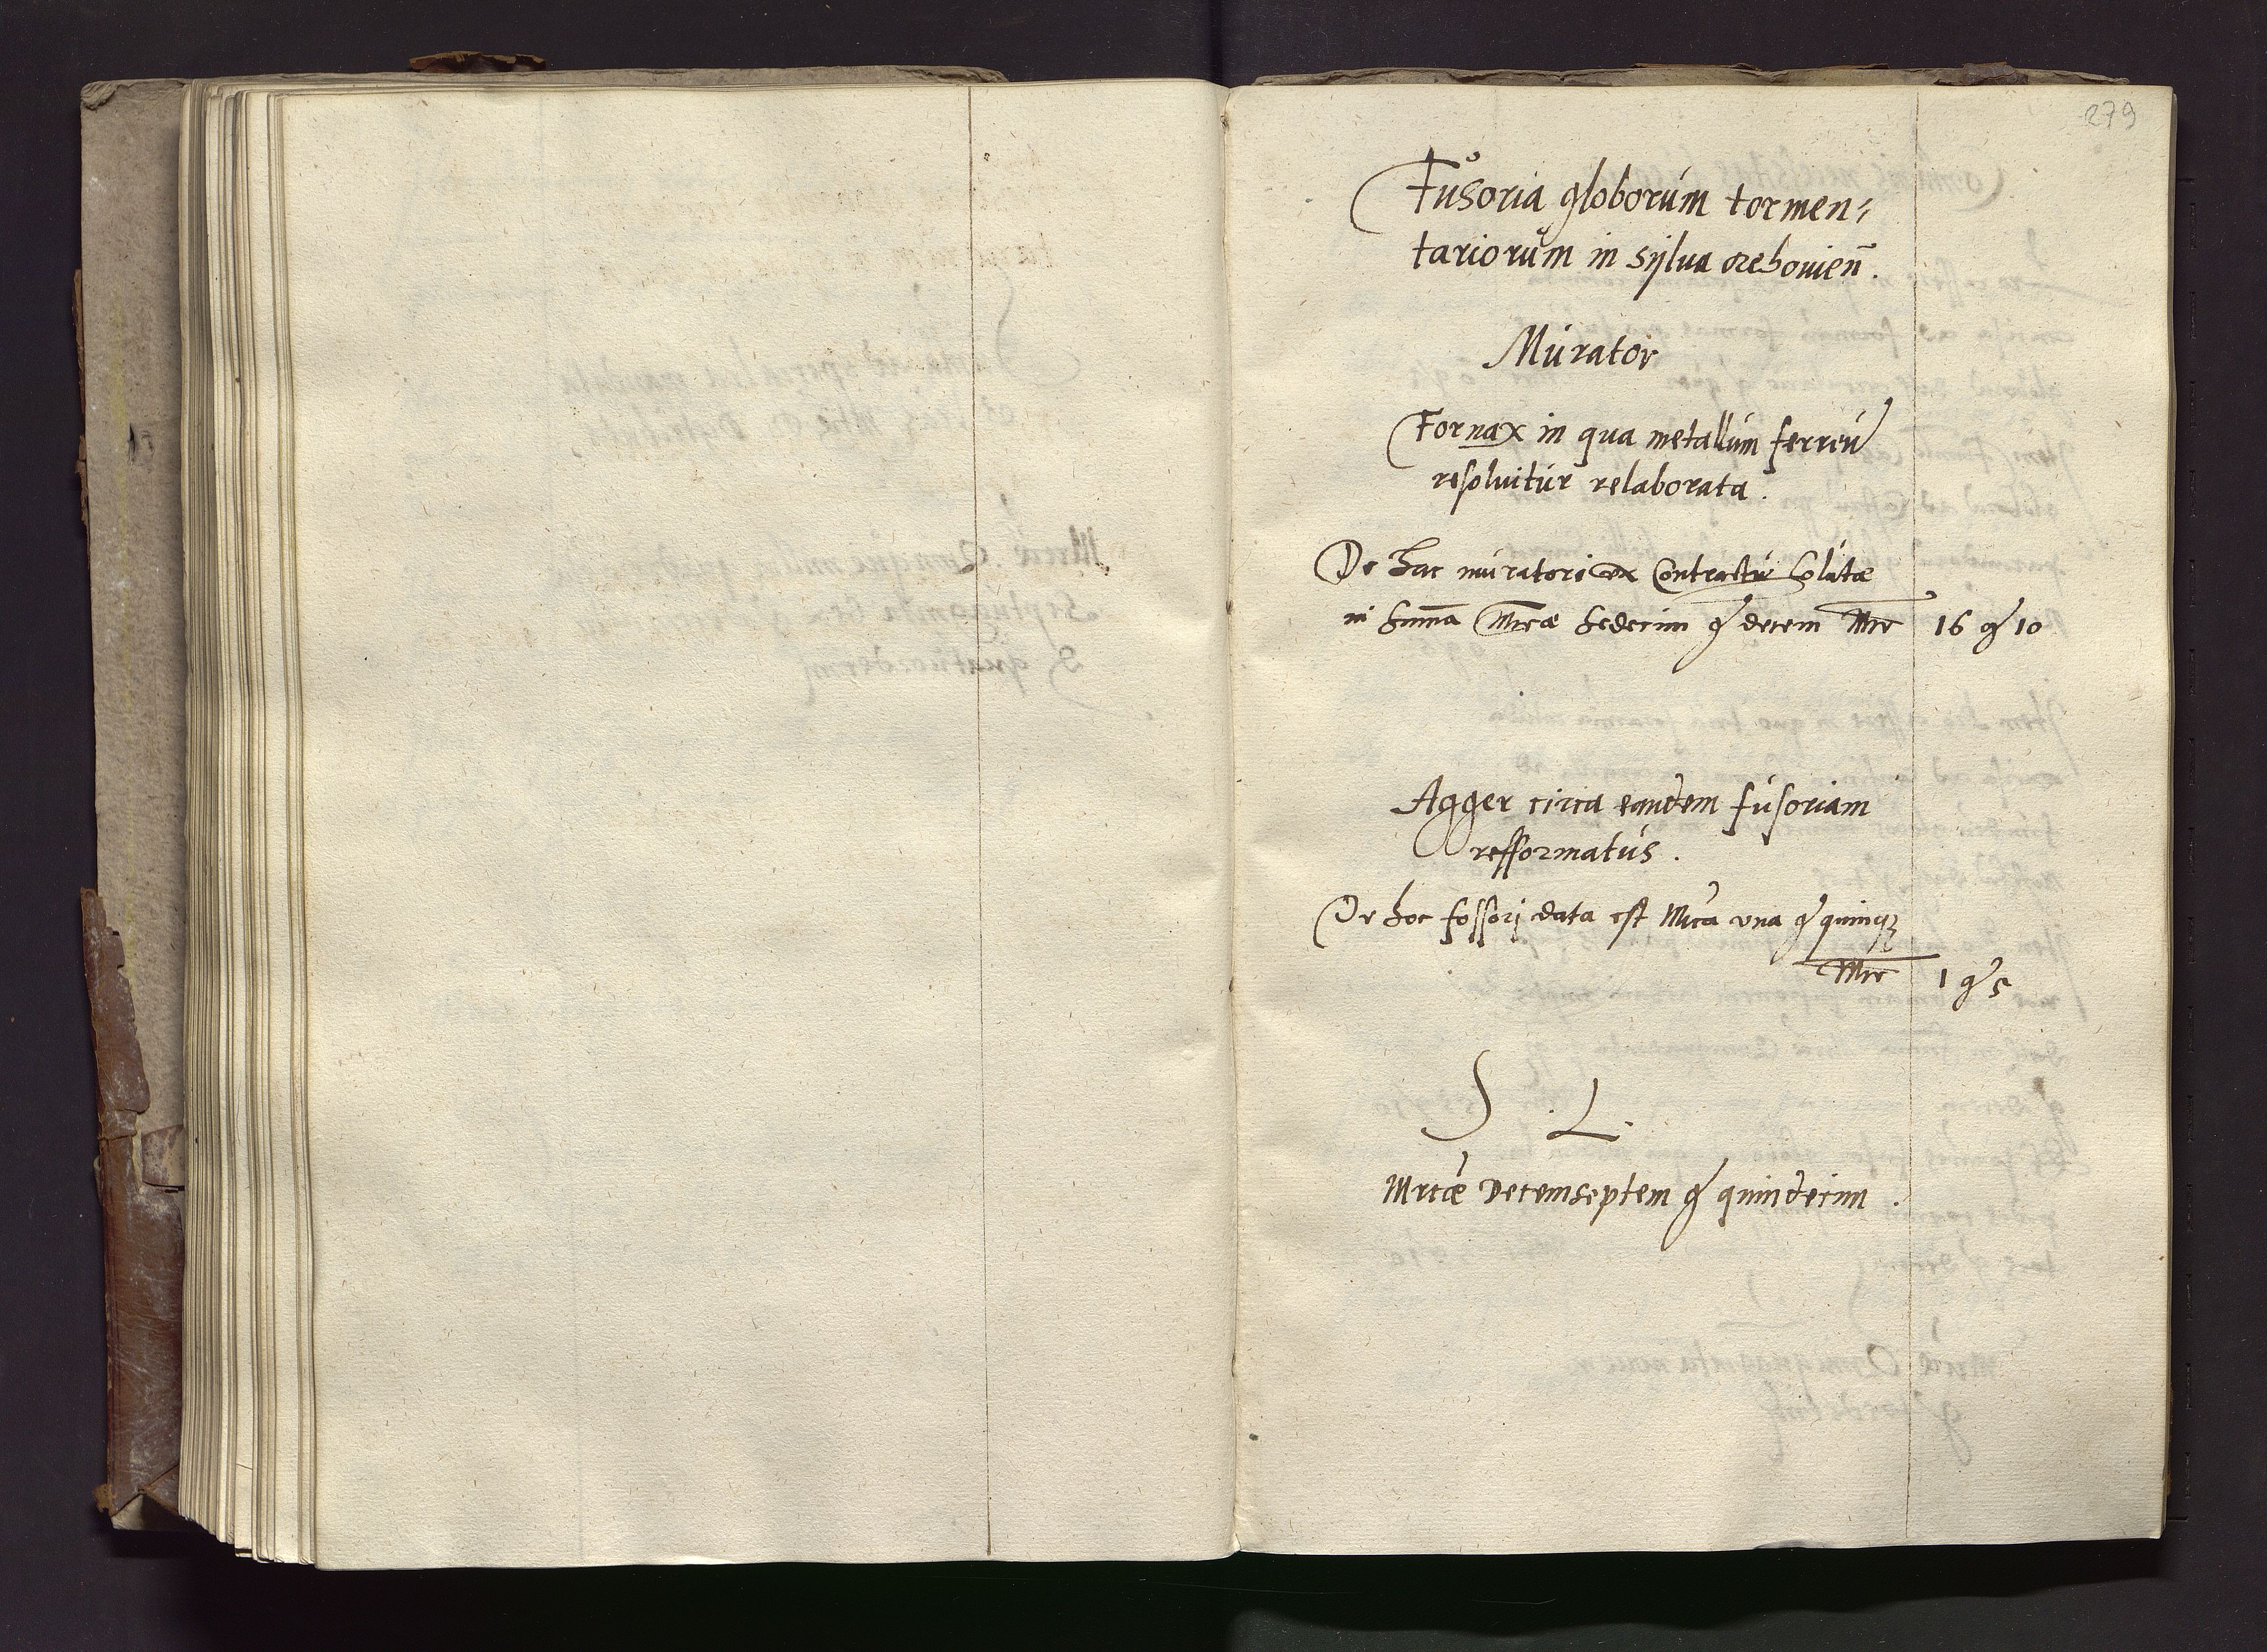 279
Fusoria globorum tormen-
tariorum in sylva orehovien.
Murator
Fornax in qua metallum ferreu
resolvitur relaborata.
De hac muratori ex Contractu solutæ
in summa Mrcæ sedecim g decem Mrc 16 g 10
Agger circa eandem fusoriam
refformatus.
De hoc fossori data est Mrca una g quinq
Mrc 1 g 5
S . L.
Mrcæ Decemseptem g quindecim .